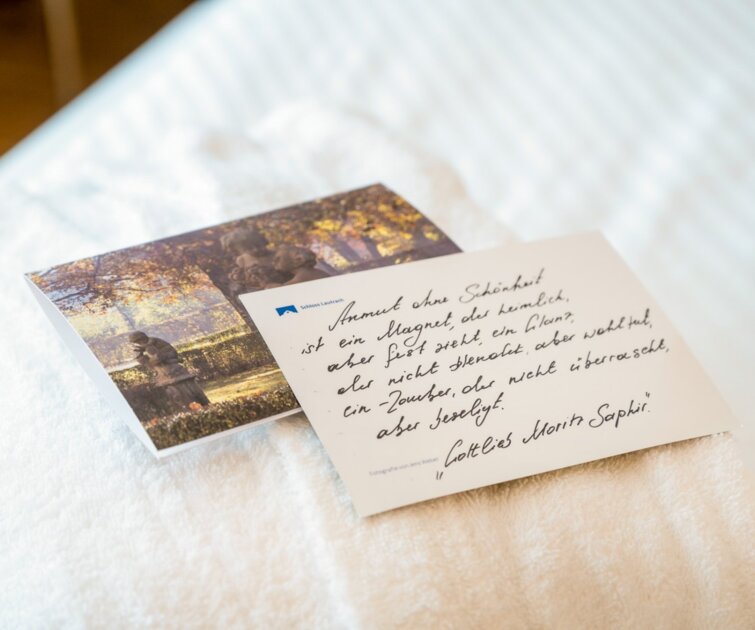 Schloss Lautrach
Anmut ohne Schönheit
ist ein Magnet, der heimlich,
aber fest zieht, ein Glanz,
der nicht blendet, aber wohl tut,
ein Zauber, der nicht überrascht,
aber beseligt.
"Gottlieb Moritz Saphir".
Fotografie von